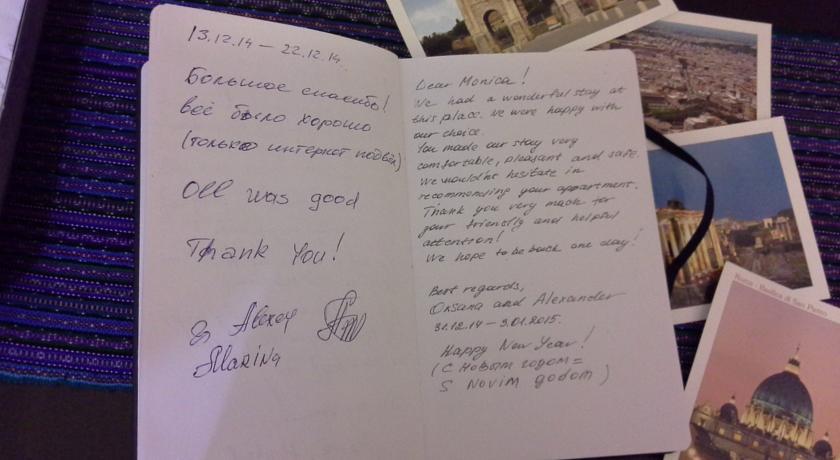 13.12.14 – 22.12.14.
Большое спасибо!
всё было хорошо
(только интернет подвёл)
Oll was good
Thank You!
Alexey
Marina
Dear Monica!
We had a wonderful stay at
this place. We were happy with
our choice.
You made our stay very
comfortable, pleasant and safe.
We wouldn't hesitate in
recommending your appartment.
Thank you very much for
your friendly and helpful
attention!
We hope to be back one day!
Best regards,
Oksana and Alexander
31.12.14 – 3.01.2015.
Happy New Year!
(С Новым годом =
S Novim godom)
Roma - Basilica di San Pietro